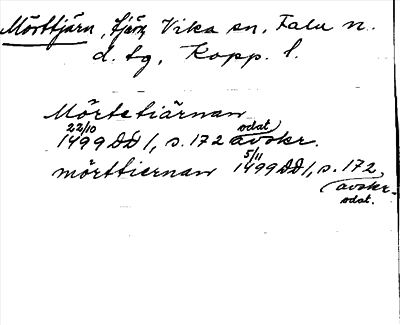 Mörttjärn, tjärn, Vika sn, Falu n.
d. tg, Kopp. l.
Mörtetiärnan
22/10 1499 DD 1, s. 172 odat avskr.
mörttiernan 5/11 1499 DD 1, s. 172
avskr.
odat.